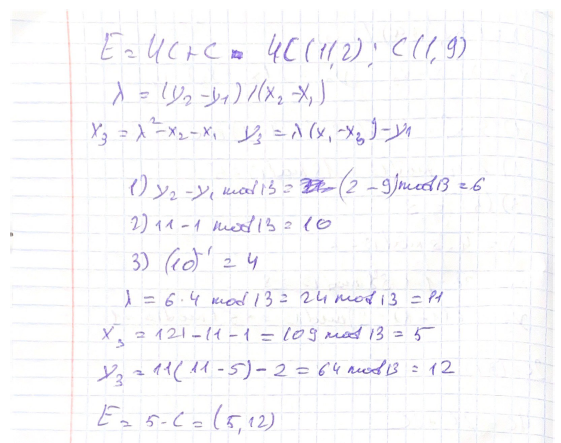 E = 4C+C = 4C(11,2); C(1,9)
λ = (y₂-y₁)/(x₂-x₁)
x₃ = λ²-x₂-x₁ y₃ = λ(x₁-x₃)-y₁
1) y₂-y₁ mod 13 = (2-9) mod 13 = 6
2) 11-1 mod 13 = 10
3) (10)⁻¹ = 4
λ = 6·4 mod 13 = 24 mod 13 = 11
x₃ = 121-11-1 = 109 mod 13 = 5
y₃ = 11(11-5)-2 = 64 mod 13 = 12
E = 5·C = (5,12)